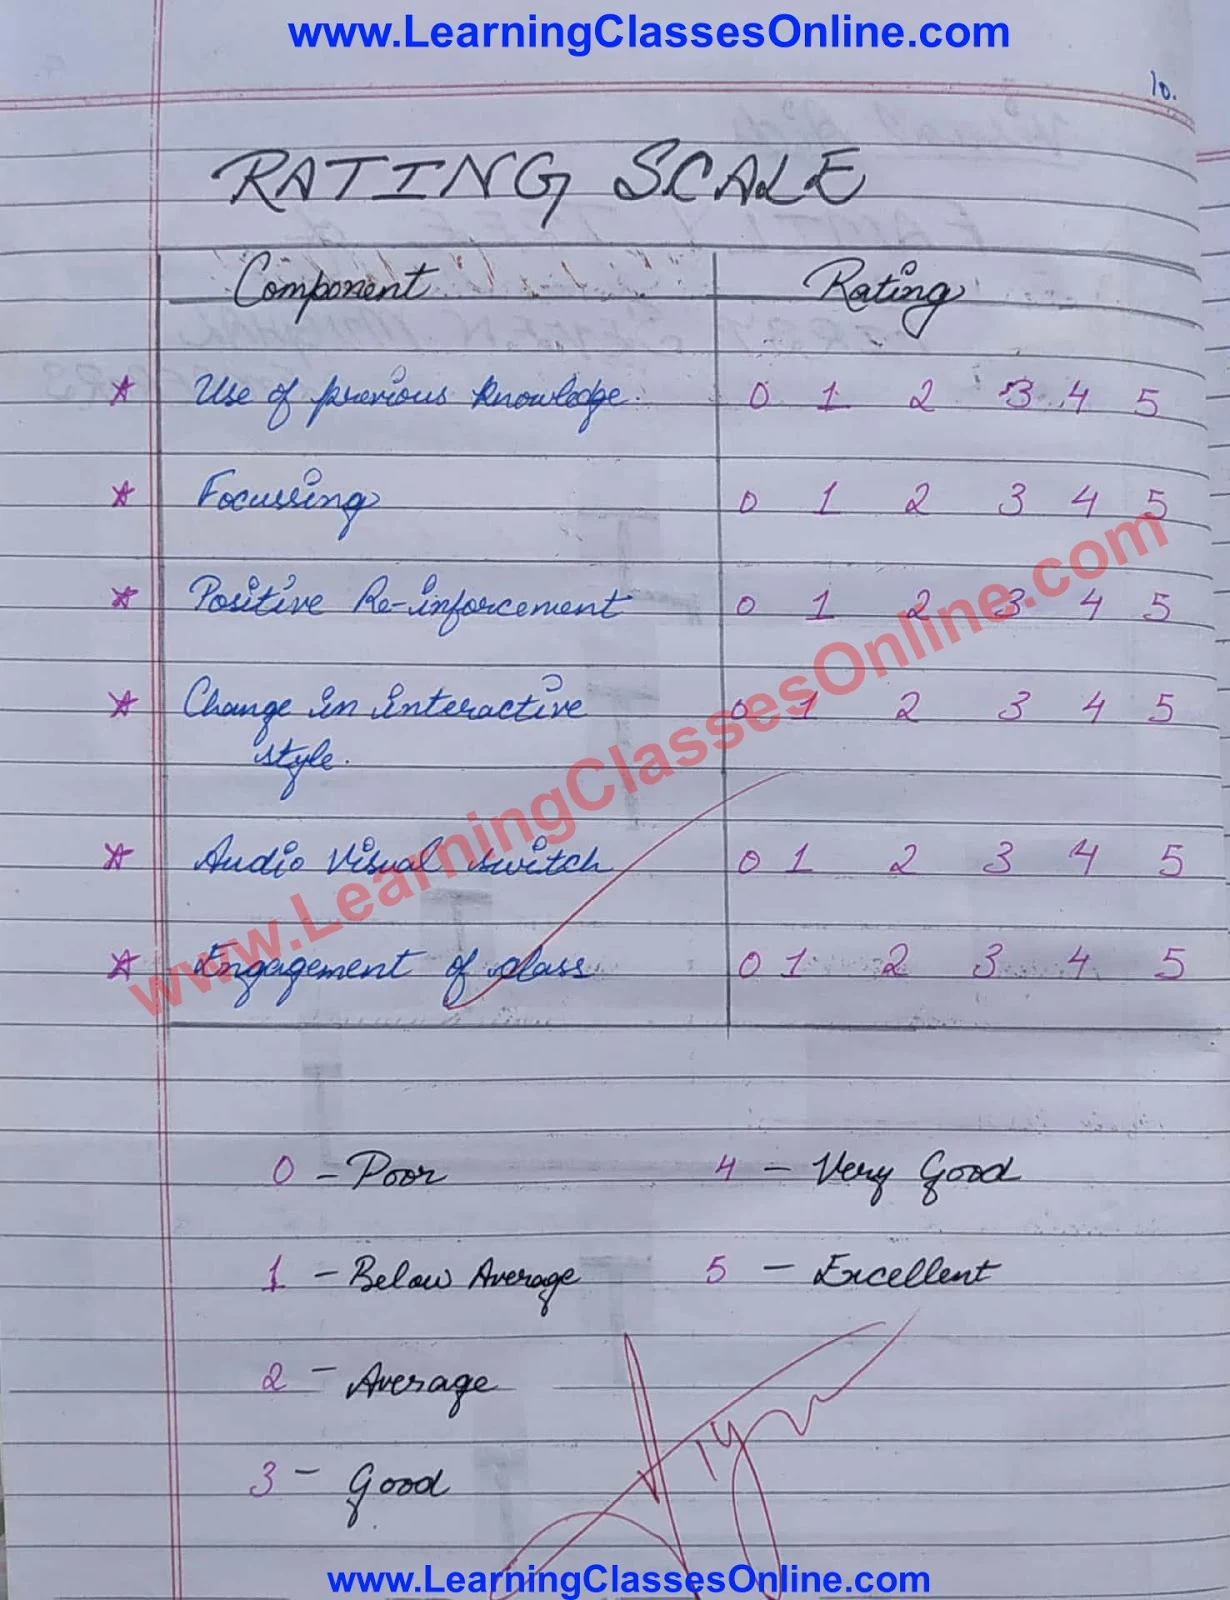 www.LearningClassesOnline.com
10.
RATING SCALE
Component Rating
Use of previous knowledge. 0 1 2 3 4 5
Focussing 0 1 2 3 4 5
Positive Re-inforcement 0 1 2 3 4 5
Change in interactive 0 1 2 3 4 5
style.
Audio Visual switch 0 1 2 3 4 5
Engagement of class 0 1 2 3 4 5
www.LearningClassesOnline.com
0 - Poor 4 - Very Good
1 - Below Average 5 - Excellent
2 - Average
3 - Good
www.LearningClassesOnline.com